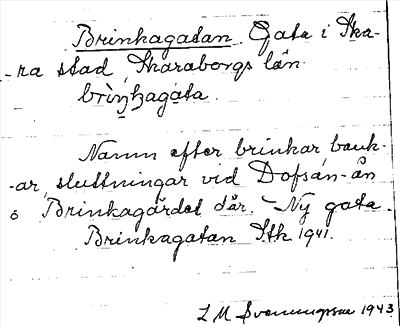 Brinkagatan. Gata i Ska-
-ra stad, Skaraborgs län.
brìŋkagata.
Namn efter brinkar, bank-
-ar, sluttningar vid Dofsån-ån
o Brinkagärdet där. - Ny gata.
Brinkagatan Stk 1941.
L M Svenungsson 1943